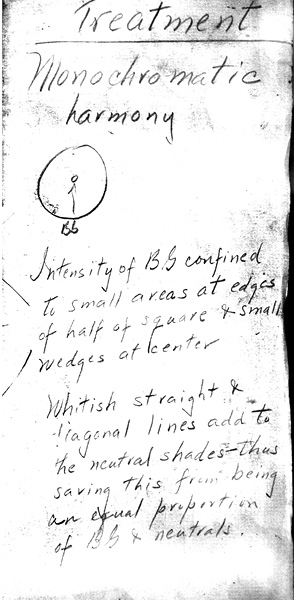 Treatment
Monochromatic
harmony
BG
Intensity of B.G confined
to small areas at edges
of half of square & small
wedges at center
Whitish straight &
diagonal lines add to
the neutral shades - thus
saving this from being
an equal proportion
of BG & neutrals.